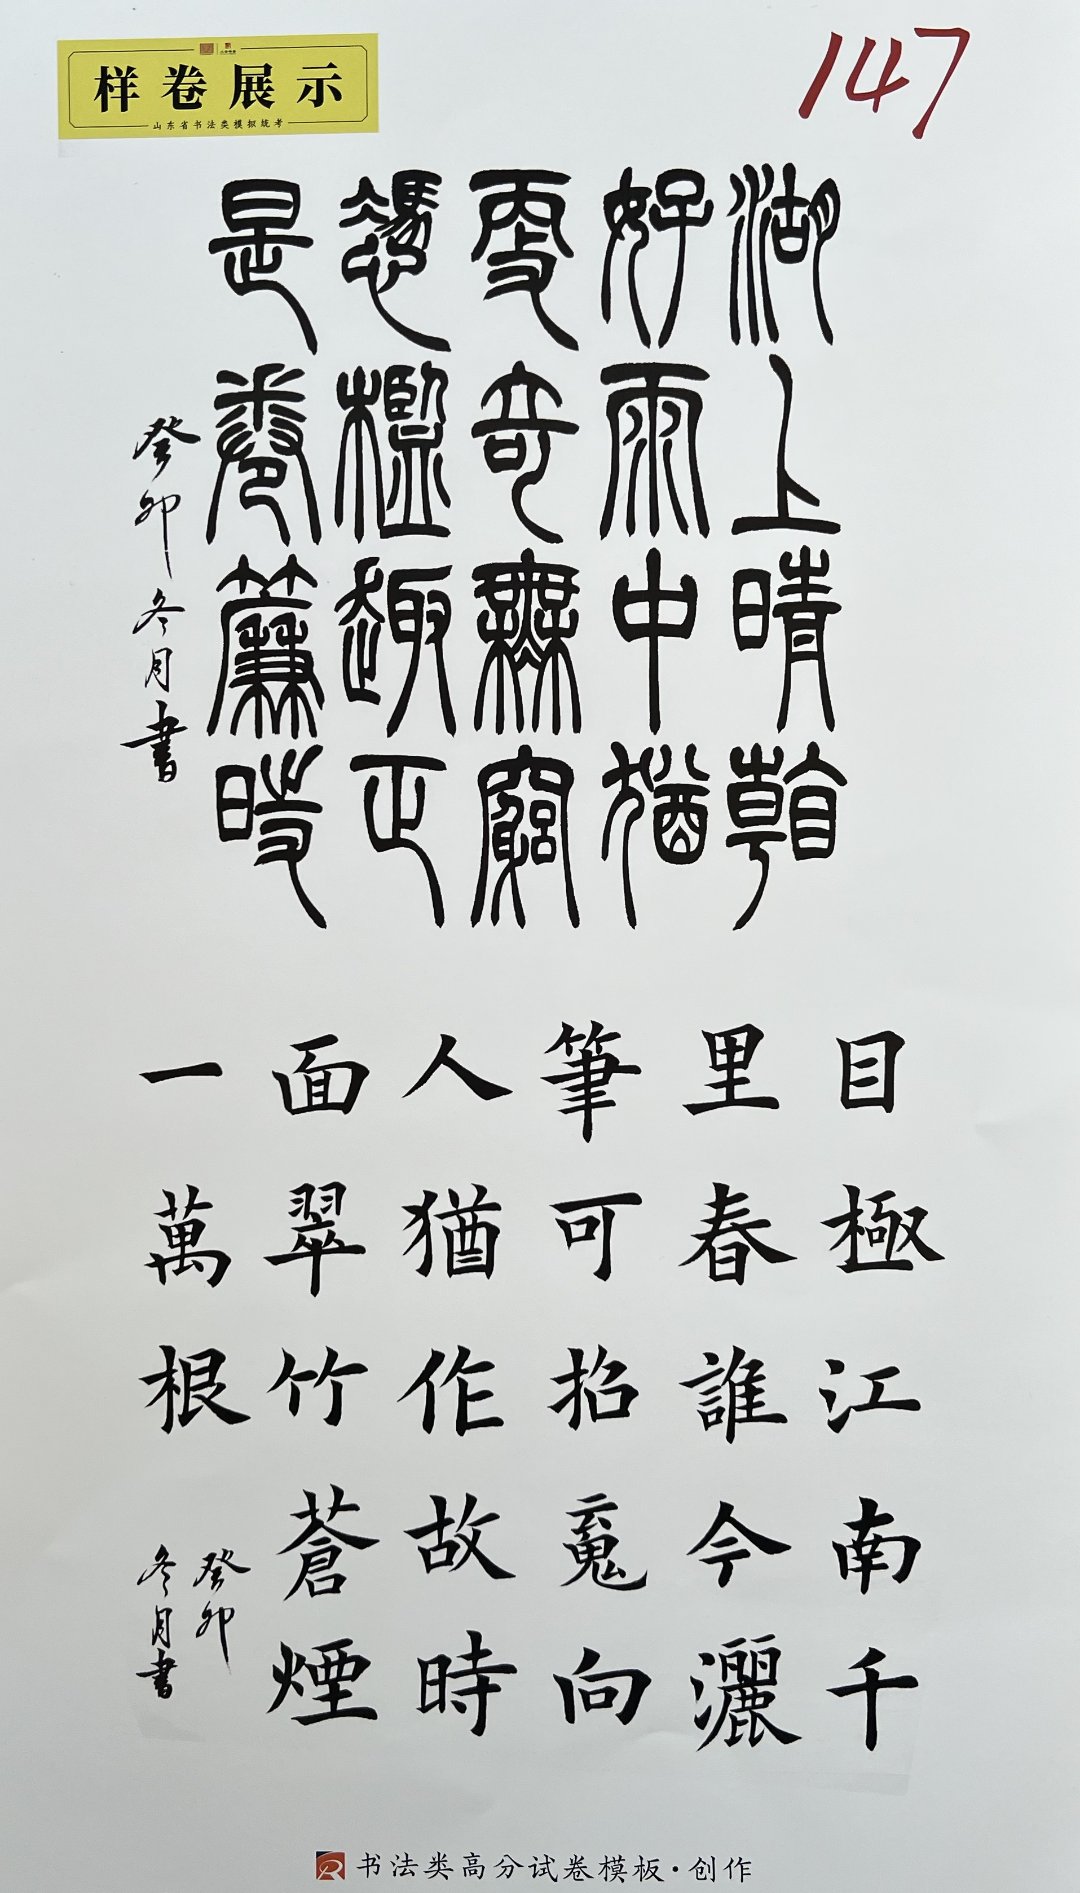 样卷展示
山东省书法类模拟统考
147
湖上晴朝
好雨中猶
更奇無窮
憑檻趣正
是卷簾時
癸卯冬月書
目極江南千
里春誰今灑
筆可招䰟向
人猶作故時
面翠竹蒼煙
一萬根
癸卯
冬月書
书法类高分试卷模板·创作